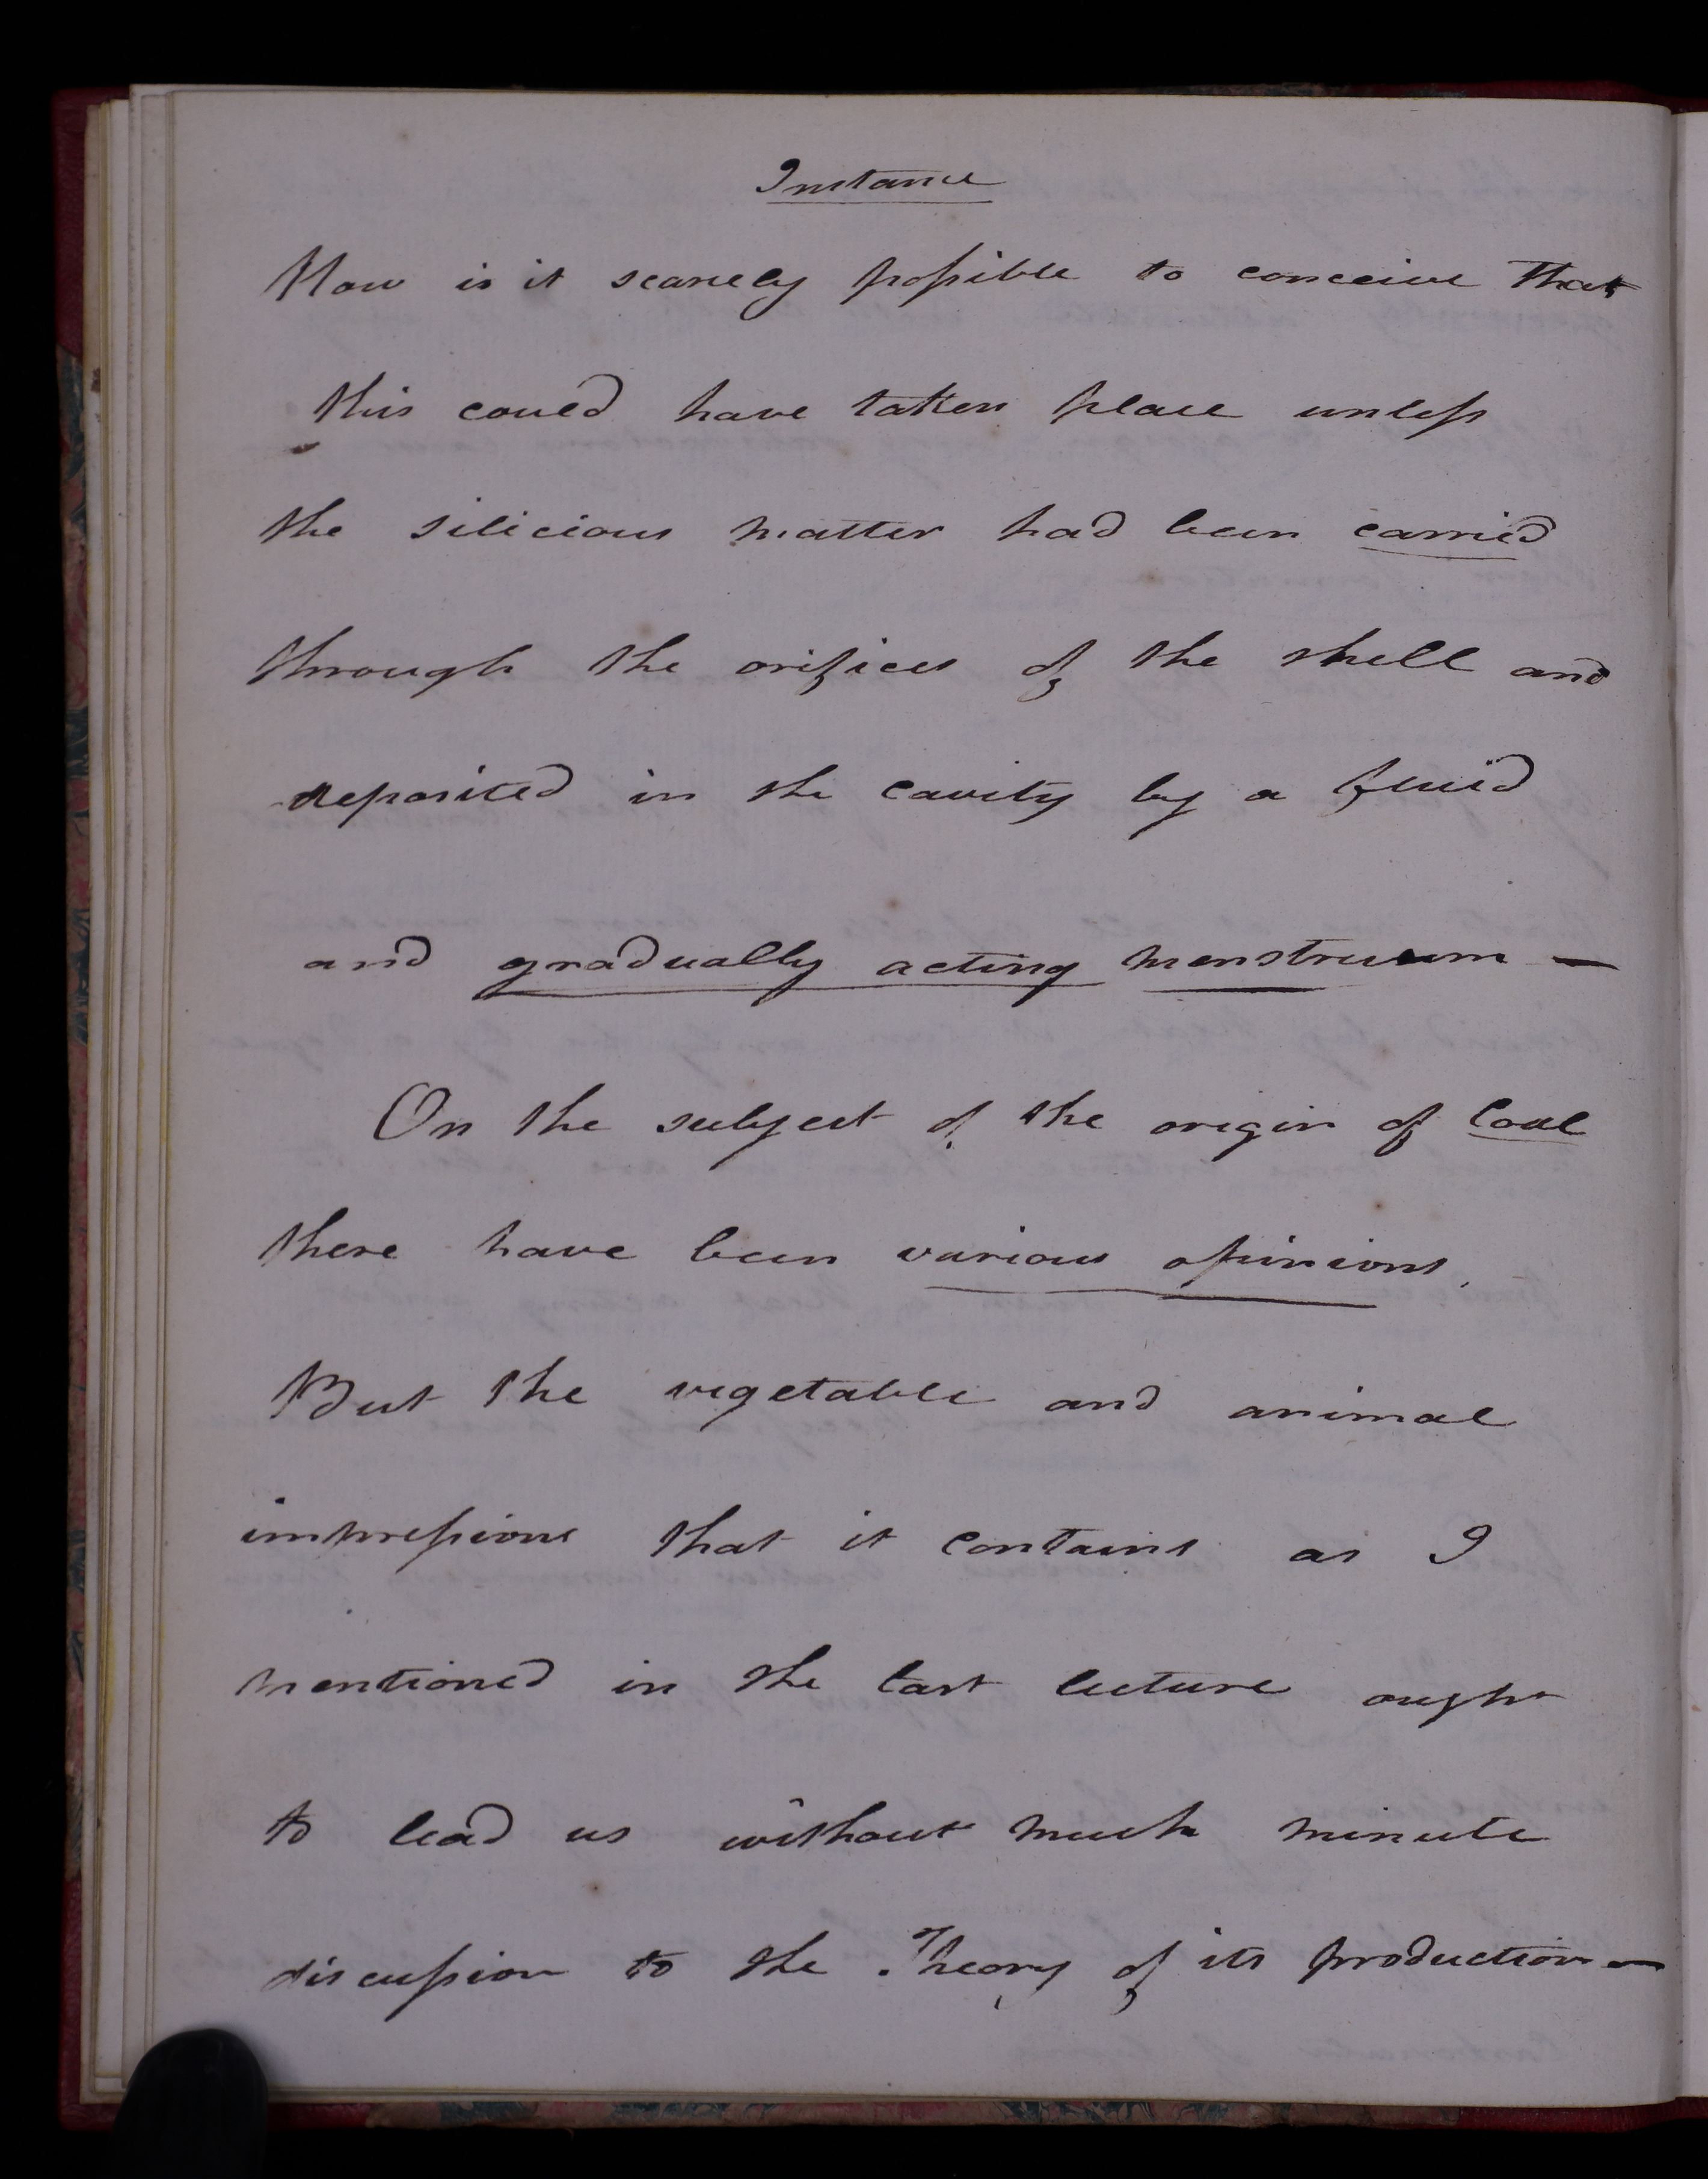 Instance
Now is it scarcely possible to conceive That
this could have taken place unless
the silicious matter had been carried
through the orifices of the shell and
deposited in the cavity by a fluid
and gradually acting menstruum —
On the subject of the origin of Coal
there have been various opinions.
But the vegetable and animal
impressions that it contains as I
mentioned in the last lecture ought
to lead us without much minute
discussion to the Theory of its production —